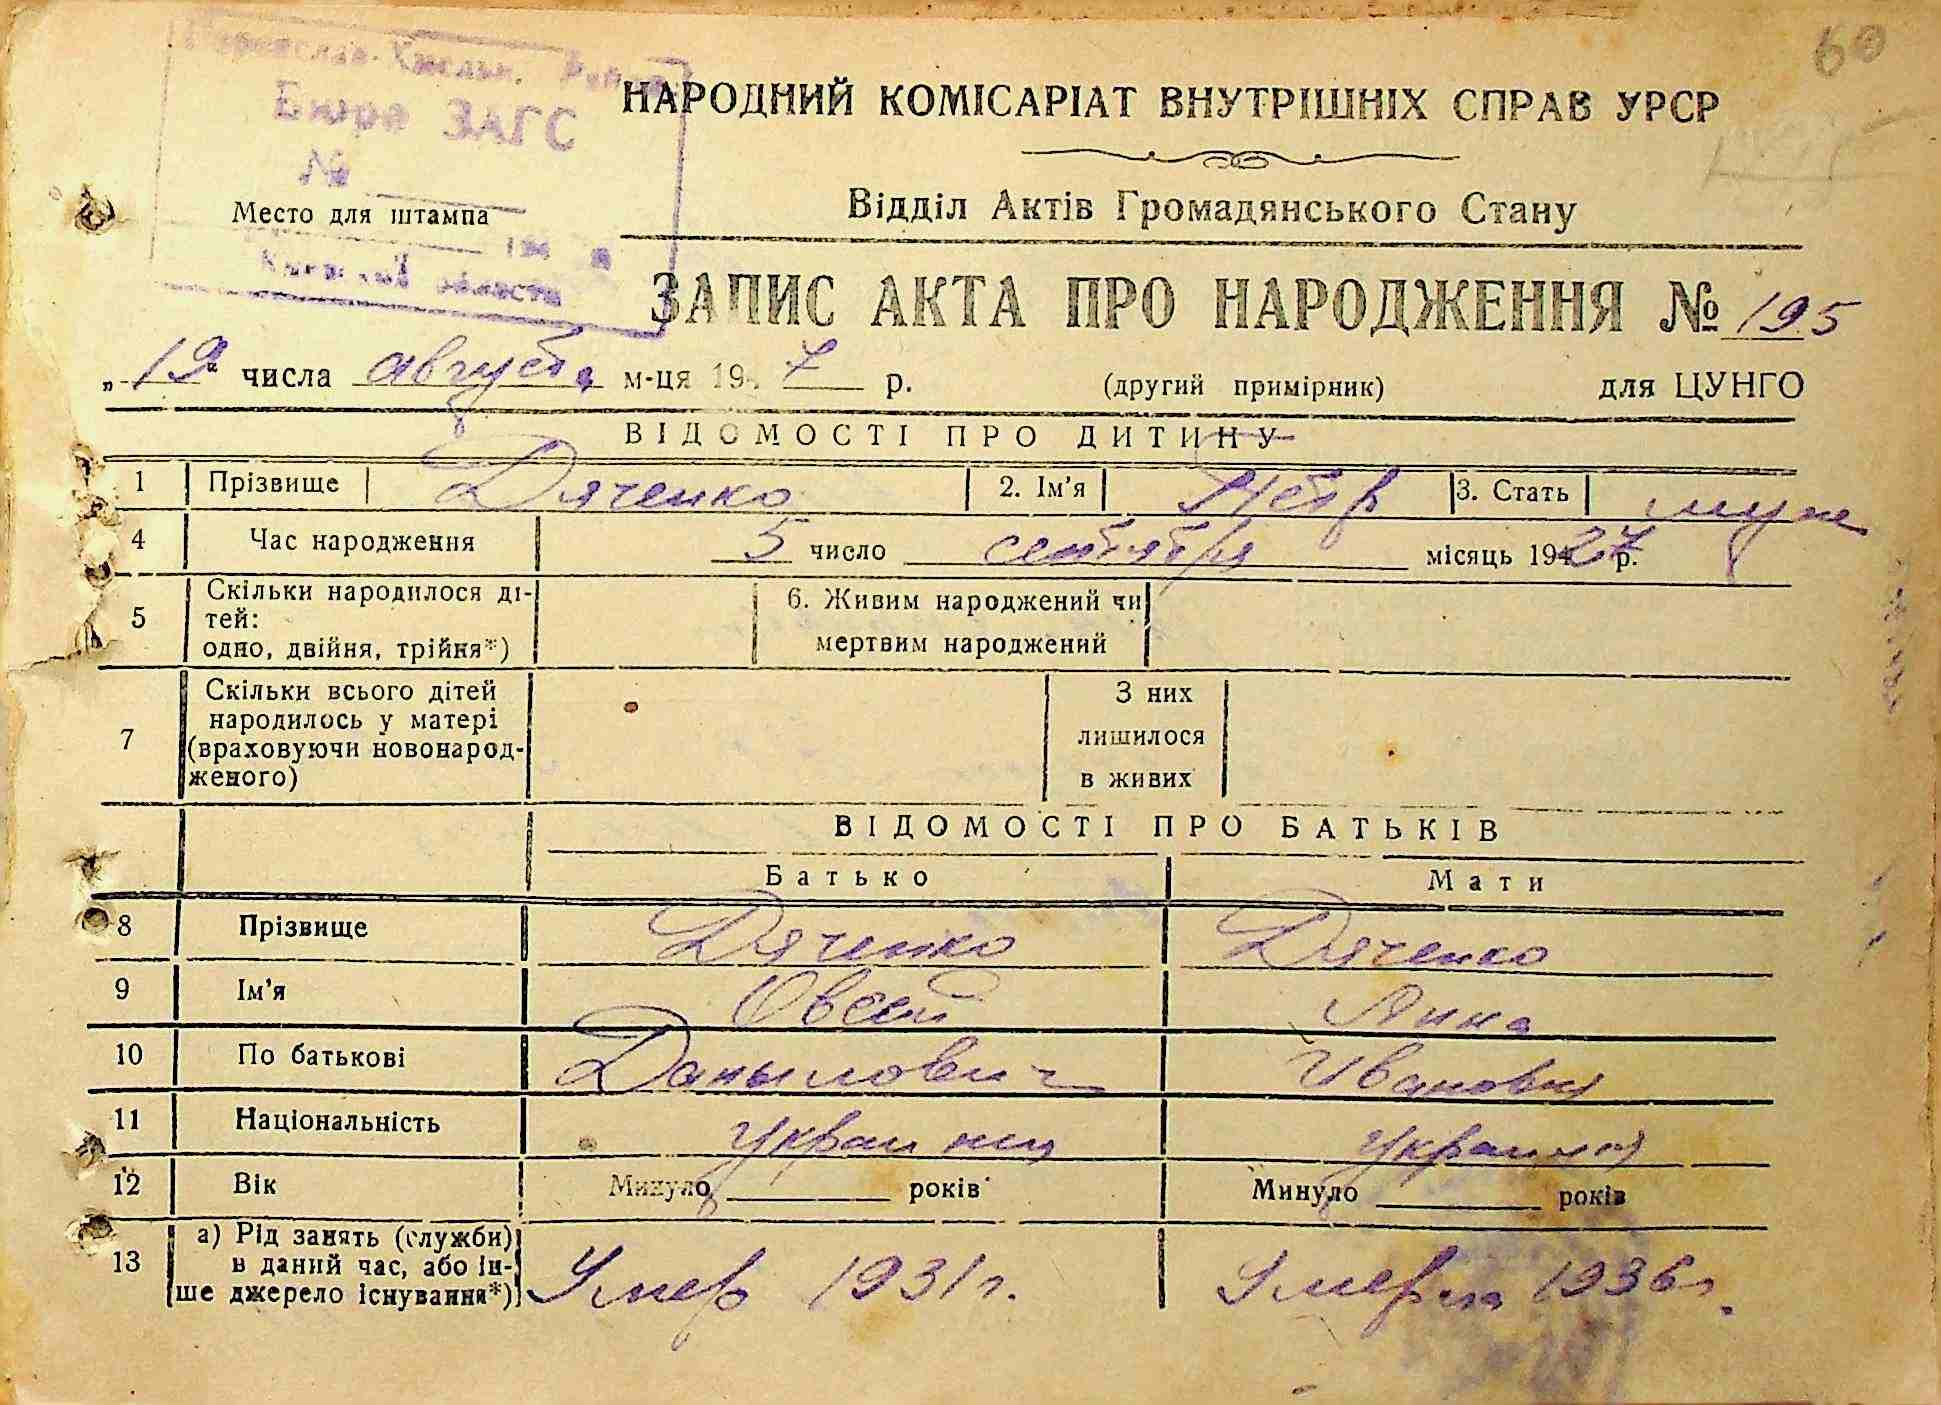 60
Бюро ЗАГС
№
НАРОДНИЙ КОМІСАРІАТ ВНУТРІШНІХ СПРАВ УРСР
Место для штампа
194
области
Відділ Актів Громадянського Стану
ЗАПИС АКТА ПРО НАРОДЖЕННЯ № 195
„19“ числа августа м-ця 19 7 р. (другий примірник) для ЦУНГО
ВІДОМОСТІ ПРО ДИТИНУ
1 Прізвище Дяченко 2. Ім'я Петр 3. Стать муж
4 Час народження 5 число сентября місяць 1927 р.
5 Скільки народилося ді-
тей:
одно, двійня, трійня*)
6. Живим народжений чи
мертвим народжений
7 Скільки всього дітей
народилось у матері
(враховуючи новонарод-
женого)
З них
лишилося
в живих
ВІДОМОСТІ ПРО БАТЬКІВ
Батько Мати
8 Прізвище Дяченко Дяченко
9 Ім'я Овсей Анна
10 По батькові Данылович Ивановна
11 Національність украинец
12 Вік Минуло років Минуло років
13 а) Рід занять (служби)
в даний час, або ін-
ше джерело існування*)
Умер 1931 г. Умерла 1936 г.